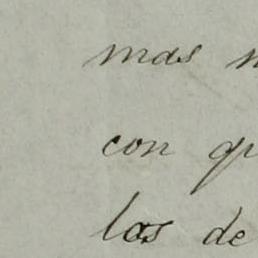 mas
con
los de